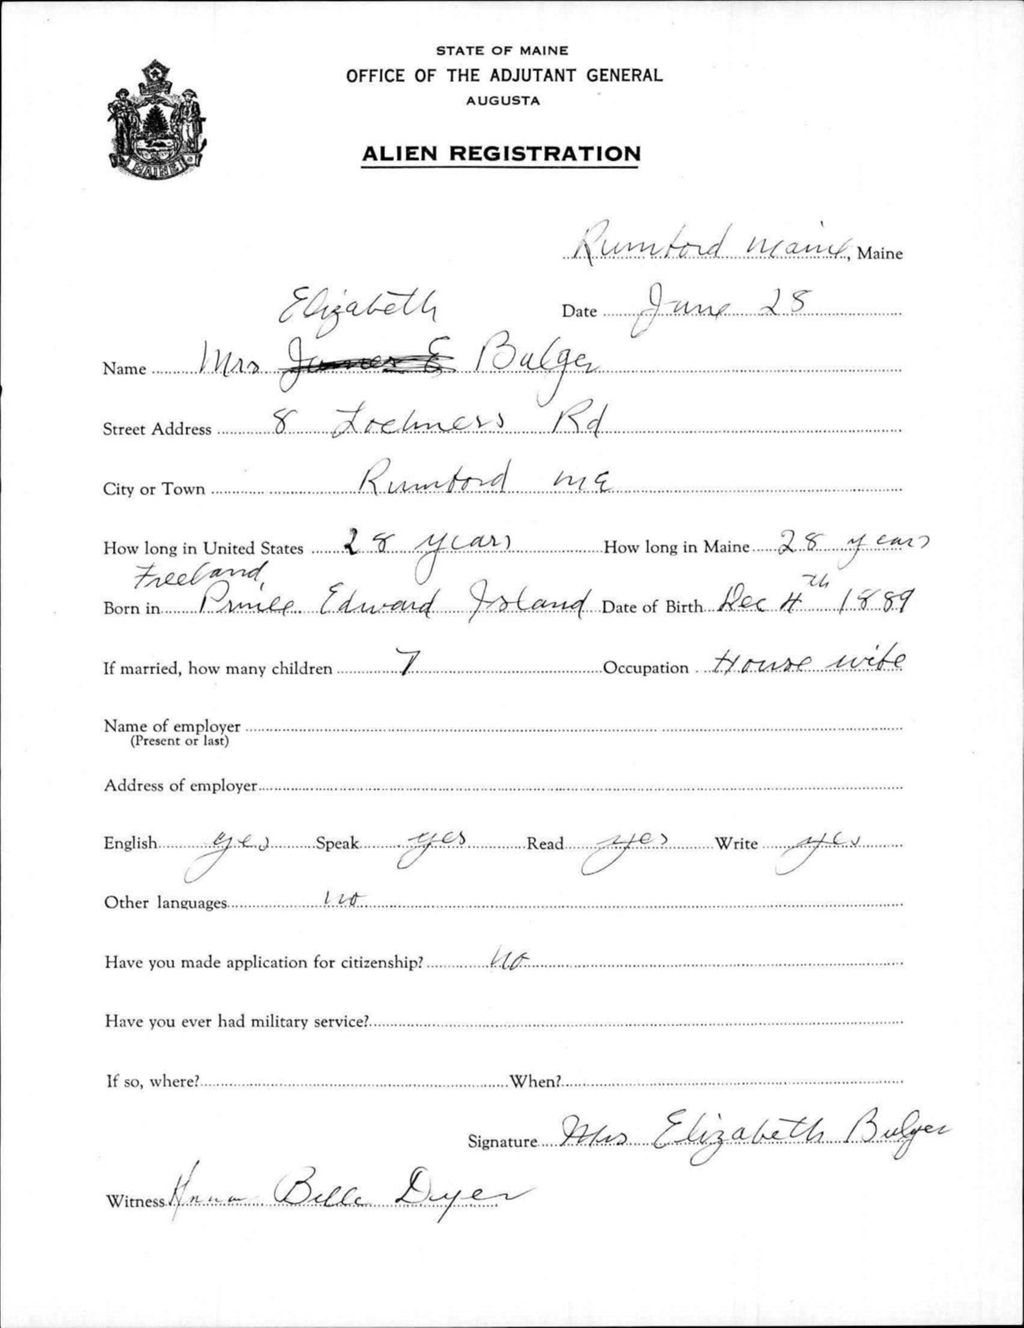 STATE OF MAINE
OFFICE OF THE ADJUTANT GENERAL
AUGUSTA
MAINE
ALIEN REGISTRATION
Rumford Maine, Maine
Elizabeth
Date June 28
Name Mrs James E Bulger
Street Address 8 Lochness Rd
City or Town Rumford ME
How long in United States 28 years How long in Maine 28 years
Freeland,
Born in Prince Edward Island Date of Birth Dec 4th 1889
If married, how many children 7 Occupation House wife
Name of employer
(Present or last)
Address of employer
English yes Speak yes Read yes Write yes
Other languages no
Have you made application for citizenship? no
Have you ever had military service?
If so, where? When?
Signature Mrs Elizabeth Bulger
Witness Anna Belle Dyer